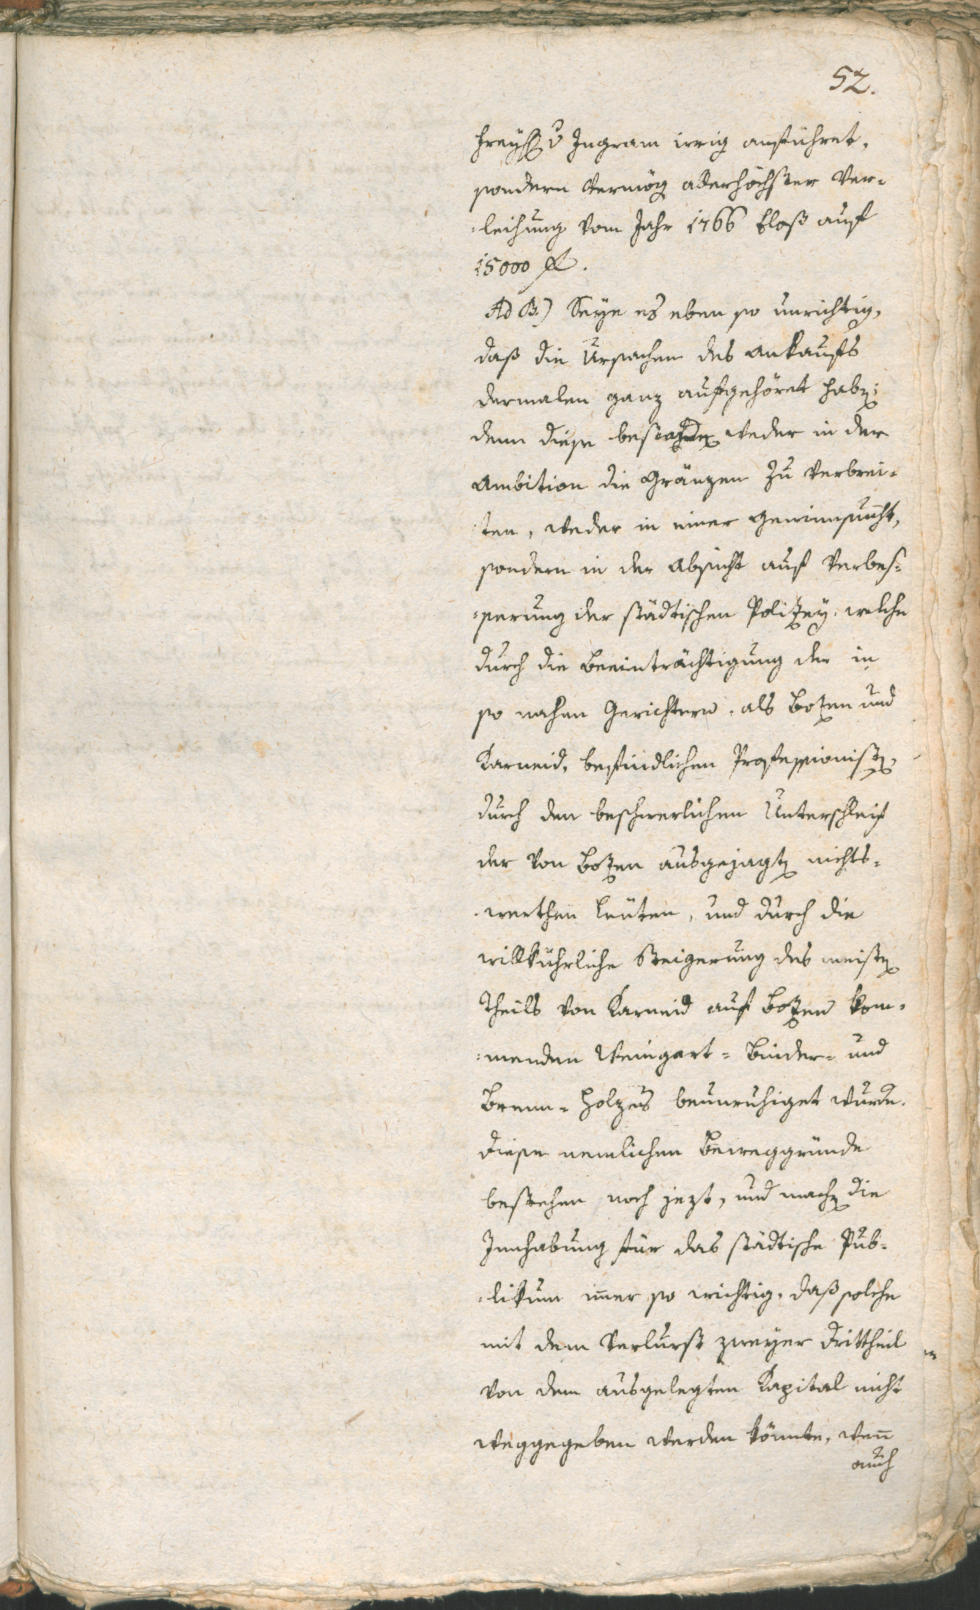 52.
Freyh: v Ingram irrig anführet,
sondern vermög allerhöchster Ver-
leihung vom Jahr 1766 bloß auf
15000 fl.
Ad B.) Seye es eben so unrichtig,
daß die Ursachen des Ankaufs
dermalen ganz aufgehöret habe;
denn diese bestanden weder in der
Ambition die Gränzen zu verbrei-
ten, weder in einer Gewinnsucht,
sondern in der Absicht auf Verbes-
serung der städtischen Polizey, welche
durch die Beeinträchtigung der in
so nahen Gerichtern, als Bozen und
Karneid, befindlichen Professionisten,
durch den beschwerlichen Unterschleif
der von Bozen ausgejagten nichts-
werthen Leuten, und durch die
willkührliche Steigerung des meisten
Theils von Karneid auf Bozen kom-
menden Weingart- Binder- und
Brenn-Holzes beunruhiget wurde.
Diese nemlichen Beweggründe
bestehen noch jezt, und machen die
Innhabung für das städtische Pub-
likum im̄er so wichtig, daß solche
mit dem Verlurst zweyer Drittheil
von dem ausgelegten Kapital nicht
weggegeben werden könnte, wen̄
auch